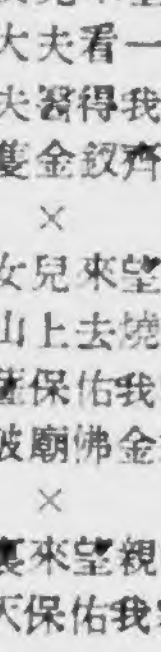 大夫看一
夫醫得我
隻金釵齊
×
女兒來望
山上去燒
薩保佑我
破廟佛金
×
裏來望親
天保佑我